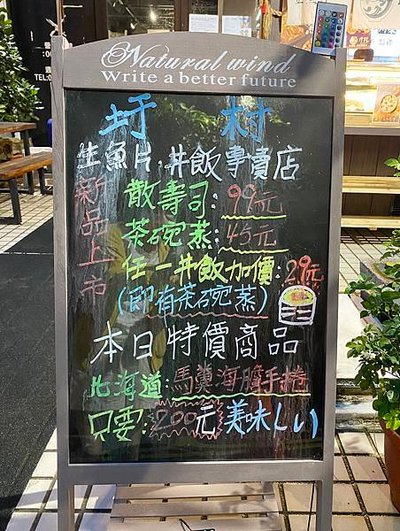 Natural wind
Write a better future
圩村
生魚片.丼飯專賣店
新品上市
散壽司:99元
茶碗蒸:45元
任一丼飯加價:29元
(即有茶碗蒸)
本日特價商品
北海道:馬糞海膽手捲
只要:200元美味しい